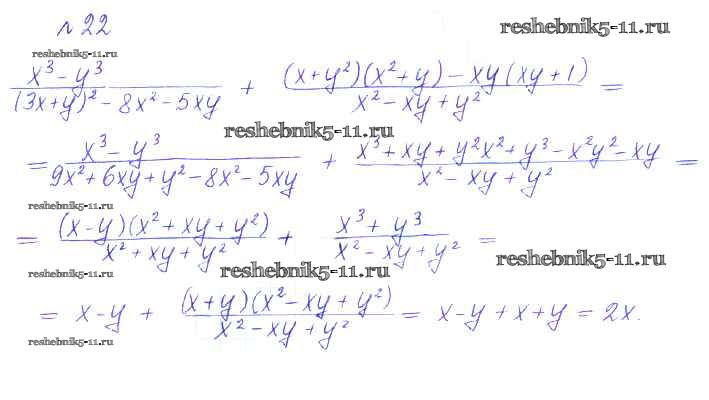 №22
reshebnik5-11.ru
reshebnik5-11.ru
(x³ - y³)/((3x+y)² - 8x² - 5xy) + ((x+y²)(x²+y) - xy(xy+1))/(x² - xy + y²) =
reshebnik5-11.ru
= (x³ - y³)/(9x² + 6xy + y² - 8x² - 5xy) + (x³ + xy + y²x² + y³ - x²y² - xy)/(x² - xy + y²) =
reshebnik5-11.ru
= ((x-y)(x² + xy + y²))/(x² + xy + y²) + (x³ + y³)/(x² - xy + y²) =
reshebnik5-11.ru
reshebnik5-11.ru
reshebnik5-11.ru
= x-y + ((x+y)(x² - xy + y²))/(x² - xy + y²) = x-y+x+y = 2x.
reshebnik5-11.ru